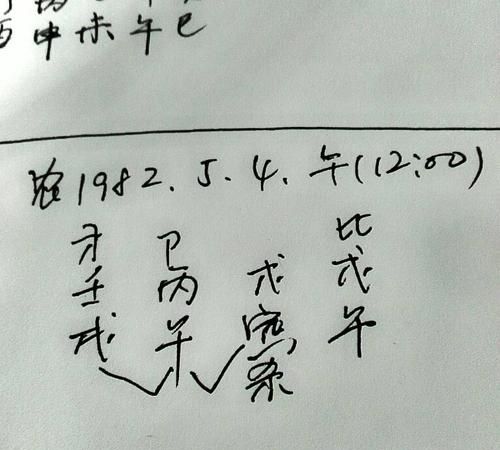 申未午巳
农1982.5.4.午(12:00)
才壬戌
卩丙午
戊寅杀
比戊午